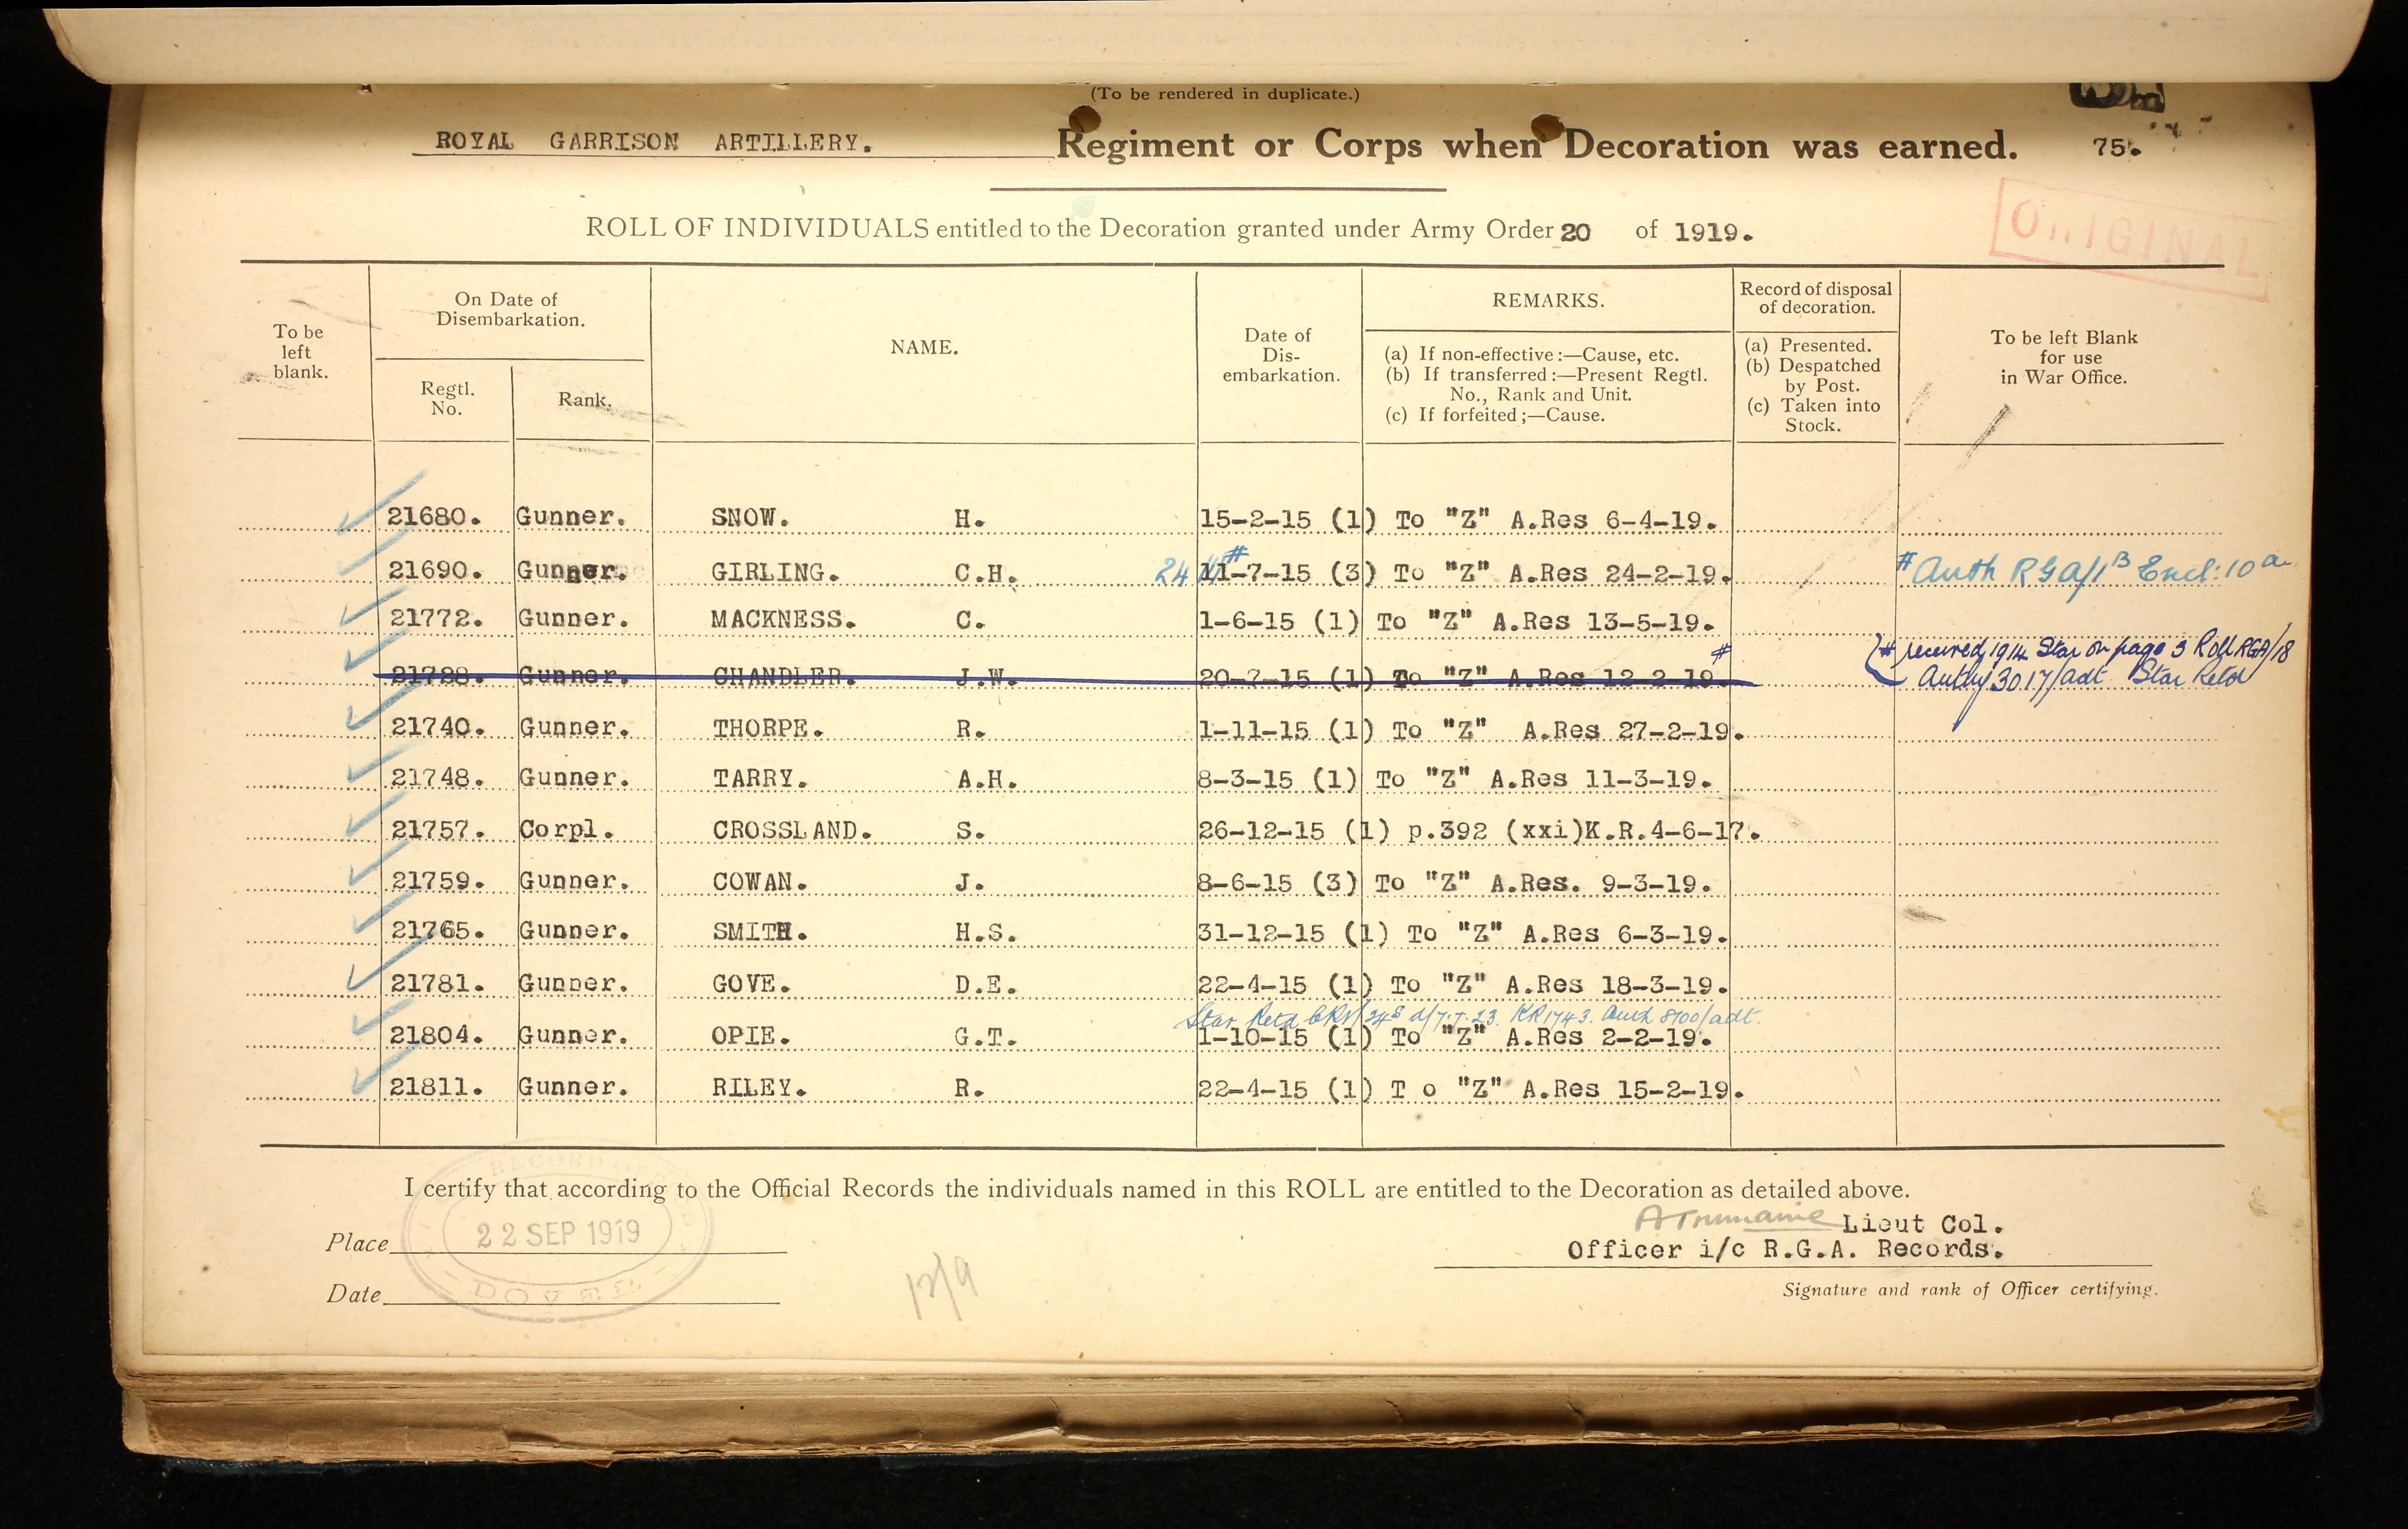 (To be rendered in duplicate.)
ROYAL GARRISON ARTILLERY. Regiment or Corps when Decoration was earned. 75.
ORIGINAL
ROLL OF INDIVIDUALS entitled to the Decoration granted under Army Order 20 of 1919.
To be left blank.
On Date of Disembarkation.
Regtl. No.
Rank.
NAME.
Date of Dis-embarkation.
REMARKS.
(a) If non-effective:—Cause, etc.
(b) If transferred:—Present Regtl. No., Rank and Unit.
(c) If forfeited;—Cause.
Record of disposal of decoration.
(a) Presented.
(b) Despatched by Post.
(c) Taken into Stock.
To be left Blank for use in War Office.
21680. Gunner. SNOW. H. 15-2-15 (1) To "Z" A.Res 6-4-19.
21690. Gunner. GIRLING. C.H. 24 11#-7-15 (3) To "Z" A.Res 24-2-19. # Auth RGA/1B Encl: 10a
21772. Gunner. MACKNESS. C. 1-6-15 (1) To "Z" A.Res 13-5-19.
21728. Gunner. CHANDLER. J.W. 20-7-15 (1) To "Z" A.Res 12-2-19. # # received 1914 Star on page 3 Roll RGA/18
Authy 3017/adt Star Retd
21740. Gunner. THORPE. R. 1-11-15 (1) To "Z" A.Res 27-2-19.
21748. Gunner. TARRY. A.H. 8-3-15 (1) To "Z" A.Res 11-3-19.
21757. Corpl. CROSSLAND. S. 26-12-15 (1) p.392 (xxi)K.R.4-6-17.
21759. Gunner. COWAN. J. 8-6-15 (3) To "Z" A.Res. 9-3-19.
21765. Gunner. SMITH. H.S. 31-12-15 (1) To "Z" A.Res 6-3-19.
21781. Gunner. GOVE. D.E. 22-4-15 (1) To "Z" A.Res 18-3-19.
Star Retd d/7.7.23. KR1743. Auth 8700/adt.
21804. Gunner. OPIE. G.T. 1-10-15 (1) To "Z" A.Res 2-2-19.
21811. Gunner. RILEY. R. 22-4-15 (1) T o "Z" A.Res 15-2-19.
I certify that according to the Official Records the individuals named in this ROLL are entitled to the Decoration as detailed above.
Lieut Col.
Officer i/c R.G.A. Records.
Signature and rank of Officer certifying.
Place
Date
RECORD
22 SEP 1919
DOVER
12/9